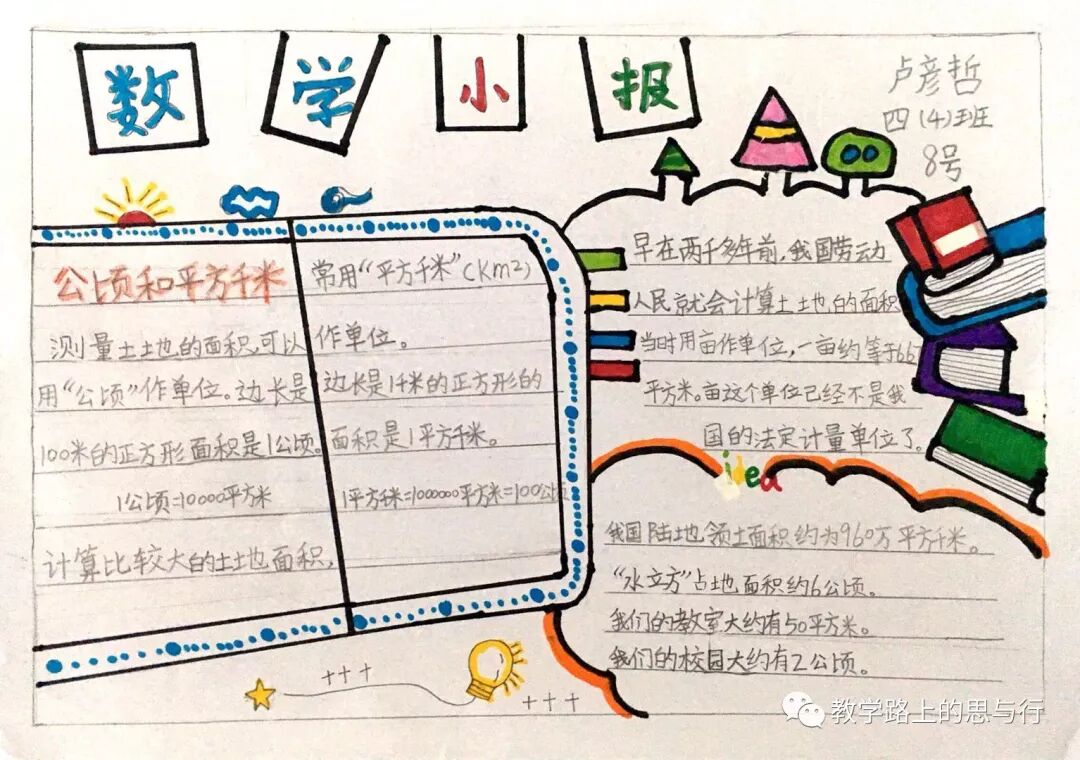 数学小报
卢彦哲
四(4)班
8号
公顷和平方千米
测量土地的面积,可以
用“公顷”作单位。边长是
100米的正方形面积是1公顷。
1公顷=10000平方米
计算比较大的土地面积,
常用“平方千米”(Km²)
作单位。
边长是1千米的正方形的
面积是1平方千米。
1平方千米=1000000平方米=100公顷
早在两千多年前,我国劳动
人民就会计算土地的面积
当时用亩作单位,一亩约等于66
平方米。亩这个单位已经不是我
国的法定计量单位了。
idea
我国陆地领土面积约为960万平方千米。
“水立方”占地面积约6公顷。
我们的教室大约有50平方米。
我们的校园大约有2公顷。
教学路上的思与行